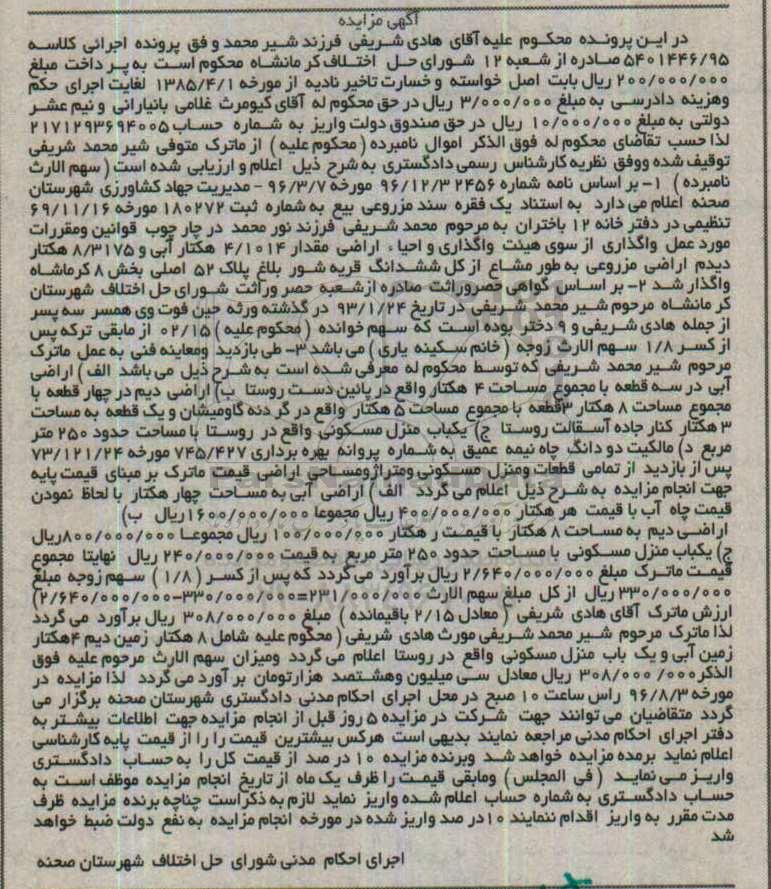 آگهی مزایده
در این پرونده محکوم علیه آقای هادی شریفی فرزند شیر محمد و فق پرونده اجرائی کلاسه
۵۴۰۱۴۴۶/۹۵ صادره از شعبه ۱۲ شورای حل اختلاف کر مانشاه محکوم است به پر داخت مبلغ
۲۰۰/۰۰۰/۰۰۰ ریال بابت اصل خواسته و خسارت تاخیر نادیه از مورخه ۱۳۸۵/۴/۱ لغایت اجرای حکم
وهزینه دادرسی به مبلغ ۳/۰۰۰/۰۰۰ ریال در حق محکوم له آقای کیومرث غلامی بانیارانی و نیم عشر
دولتی به مبلغ ۱۰/۰۰۰/۰۰۰ ریال در حق صندوق دولت واریز به شماره حساب ۲۱۷۱۲۹۳۶۹۴۰۰۵
لذا حسب تقاضای محکوم له فوق الذکر اموال نامبرده (محکوم علیه) از ماترک متوفی شیر محمد شریفی
توقیف شده ووفق نظریه کارشناس رسمی دادگستری به شرح ذیل اعلام و ارزیابی شده است (سهم الارث
نامبرده) ۱- بر اساس نامه شماره ۲۴۵۶ ۹۶/۱۲/۳ مورخه ۹۶/۳/۷ - مدیریت جهاد کشاورزی شهرستان
صحنه اعلام می دارد به استناد یک فقره سند مزروعی بیع به شماره ثبت ۱۸۰۲۷۲ مورخه ۶۹/۱۱/۱۶
تنظیمی در دفتر خانه ۱۲ باختران به مرحوم محمد شریفی فرزند نور محمد در چار چوب قوانین ومقررات
مورد عمل واگذاری از سوی هیئت واگذاری و احیاء اراضی مقدار ۴/۱۰۱۴ هکتار آبی و ۸/۳۱۷۵ هکتار
دیدم اراضی مزروعی به طور مشاع از کل ششدانگ قریه شور بلاغ پلاک ۵۲ اصلی بخش ۸ کرماشاه
واگذار شد ۲- بر اساس گواهی حصروراثت صادره از شعبه حصر ورآثت شورای حل اختلاف شهرستان
کر مانشاه مرحوم شیر محمد شریفی در تاریخ ۹۳/۱/۲۴ در گذشته ورثه حین فوت وی همسر سه پسر
از جمله هادی شریفی و ۹ دختر بوده است که سهم خوانده (محکوم علیه) ۰۲/۱۵ از مابقی ترکه پس
از کسر ۱/۸ سهم الارث زوجه (خانم سکینه یاری) می باشد ۳- طی بازدید ومعاینه فنی به عمل ماترک
مرحوم شیر محمد شریفی که توسط محکوم له معرفی شده است به شرح ذیل می باشد الف) اراضی
آبی در سه قطعه با مجموع مساحت ۴ هکتار واقع در پائین دست روستا ب) اراضی دیم در چهار قطعه با
مجموع مساحت ۸ هکتار ۳قطعه با مجموع مساحت ۵ هکتار واقع در گر دنه گاومیشان و یک قطعه به مساحت
۳ هکتار کنار جاده آسقالت روستا ج) یکباب منزل مسکونی واقع در روستا با مساحت حدود ۲۵۰ متر
مربع د) مالکیت دو دانگ چاه نیمه عمیق به شماره پروانه بهره برداری ۷۴۵/۴۲۷ مورخه ۷۳/۱۲۱/۲۴
پس از بازدید از تمامی قطعات ومنزل مسکونی ومتراژومساحی اراضی قیمت ماترک بر مبنای قیمت پایه
جهت انجام مزایده به شرح ذیل اعلام می گردد الف) اراضی آبی به مساحت چهار هکتار با لحاظ نمودن
قیمت چاه آب با قیمت هر هکتار ۴۰۰/۰۰۰/۰۰۰ ریال مجموعا ۱۶۰۰/۰۰۰/۰۰۰ریال ب)
اراضی دیم به مساحت ۸ هکتار با قیمت ر هکتار ۱۰۰/۰۰۰/۰۰۰ ریال مجموعا ۸۰۰/۰۰۰/۰۰۰ریال
ج) یکباب منزل مسکونی با مساحت حدود ۲۵۰ متر مربع به قیمت ۲۴۰/۰۰۰/۰۰۰ ریال نهایتا مجموع
قیمت ماترک مبلغ ۲/۶۴۰/۰۰۰/۰۰۰ ریال برآورد می گردد که پس از کسر (۱/۸) سهم زوجه مبلغ
۳۳۰/۰۰۰/۰۰۰ ریال از کل مبلغ سهم الارث ۲۳۱/۰۰۰/۰۰۰=۳۳۰/۰۰۰/۰۰۰-۲/۶۴۰/۰۰۰/۰۰۰)
ارزش ماترک آقای هادی شریفی (معادل ۲/۱۵ باقیمانده) مبلغ ۳۰۸/۰۰۰/۰۰۰ ریال برآورد می گردد
لذا ماترک مرحوم شیر محمد شریفی مورث هادی شریفی (محکوم علیه شامل ۸ هکتار زمین دیم ۴هکتار
زمین آبی و یک باب منزل مسکونی واقع در روستا اعلام می گردد ومیزان سهم الارث مرحوم علیه فوق
الذکر۳۰۸/۰۰۰/۰۰۰ ریال معادل سی میلیون وهشتصد هزارتومان بر آورد می گردد لذا مزایده در
مورخه ۹۶/۸/۳ راس ساعت ۱۰ صبح در محل اجرای احکام مدنی دادگستری شهرستان صحنه برگزار می
گردد متقاضیان می توانند جهت شرکت در مزایده ۵ روز قبل از انجام مزایده جهت اطلاعات بیشتر به
دفتر اجرای احکام مدنی مراجعه نمایند بدیهی است هرکس بیشترین قیمت را را از قیمت پایه کارشناسی
اعلام نماید برمده مزایده خواهد شد وبرنده مزایده ۱۰ در صد از قیمت کل را به حساب دادگستری
واریز می نماید (فی المجلس) ومابقی قیمت را ظرف یک ماه از تاریخ انجام مزایده موظف است به
حساب دادگستری به شماره حساب اعلام شده واریز نماید لازم به ذکراست چناچه برنده مزایده ظرف
مدت مقرر به واریز اقدام ننمایند ۱۰در صد واریز شده در مورخه انجام مزایده به نفع دولت ضبط خواهد
شد
اجرای احکام مدنی شورای حل اختلاف شهرستان صحنه